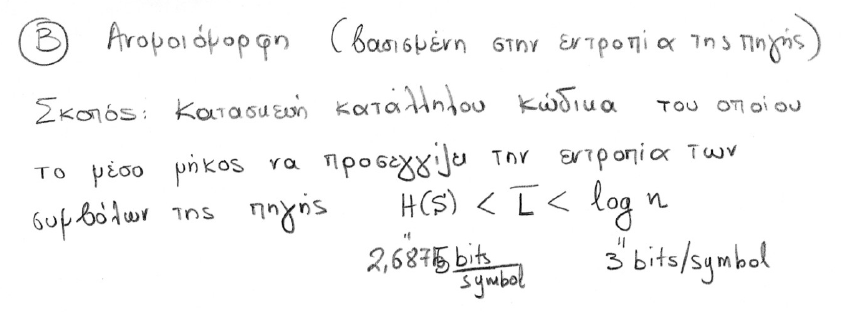 Β Ανομοιόμορφη (βασισμένη στην εντροπία της πηγής)
Σκοπός: Κατασκευή κατάλληλου κώδικα του οποίου
το μέσο μήκος να προσεγγίζει την εντροπία των
συμβόλων της πηγής H(S) < L̅ < log n
" "
2,6875 bits/symbol 3 bits/symbol